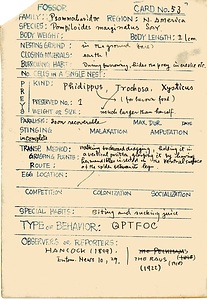 FOSSOR CARD No. 53
FAMILY: Psammocharidae REGION: N. America
SPECIES: Pompiloides marginatus Say
BODY WEIGHT: BODY LENGTH: 11 cm
NESTING GROUND: in the ground
CLOSING MATERIALS: earth
BURROWING HABIT: During burrowing, hides the prey in
No. CELLS IN A SINGLE NEST:
PREY
KIND: Phidippus, Trochosa, Xysticus
(favourite food)
PRESERVED No.: 1
WEIGHT OR SIZE: much larger than itself.
PARALYSIS: MAX. DUR. DAYS
STINGING MALAXATION AMPUTATION
incomplete
TRANSP. METHOD: walking backward dragging,
GRASPING POINTS:
ROUTE:
EGG LOCATION:
COMPETITION COLONIZATION SOCIALIZATION
SPECIAL HABITS: Biting and sucking juice
TYPE OF BEHAVIOR: QPTFOC
OBSERVERS OR REPORTERS:
HANCOCK (1899)
Entom. News 10, 29.
THE RAUS
(1918)